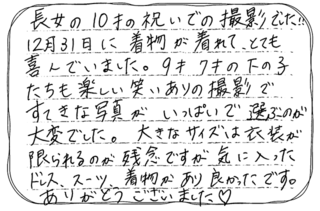 長女の10才の祝いでの撮影でした!!
12月31日に着物が着れて、とても
喜んでいました。9才7才の下の子
たちも楽しい笑いありの撮影で
すてきな写真がいっぱいで選ぶのが
大変でした。大きなサイズは衣装が
限られるのが残念ですが気に入った
ドレス、スーツ、着物があり良かったです。
ありがとうございました♡